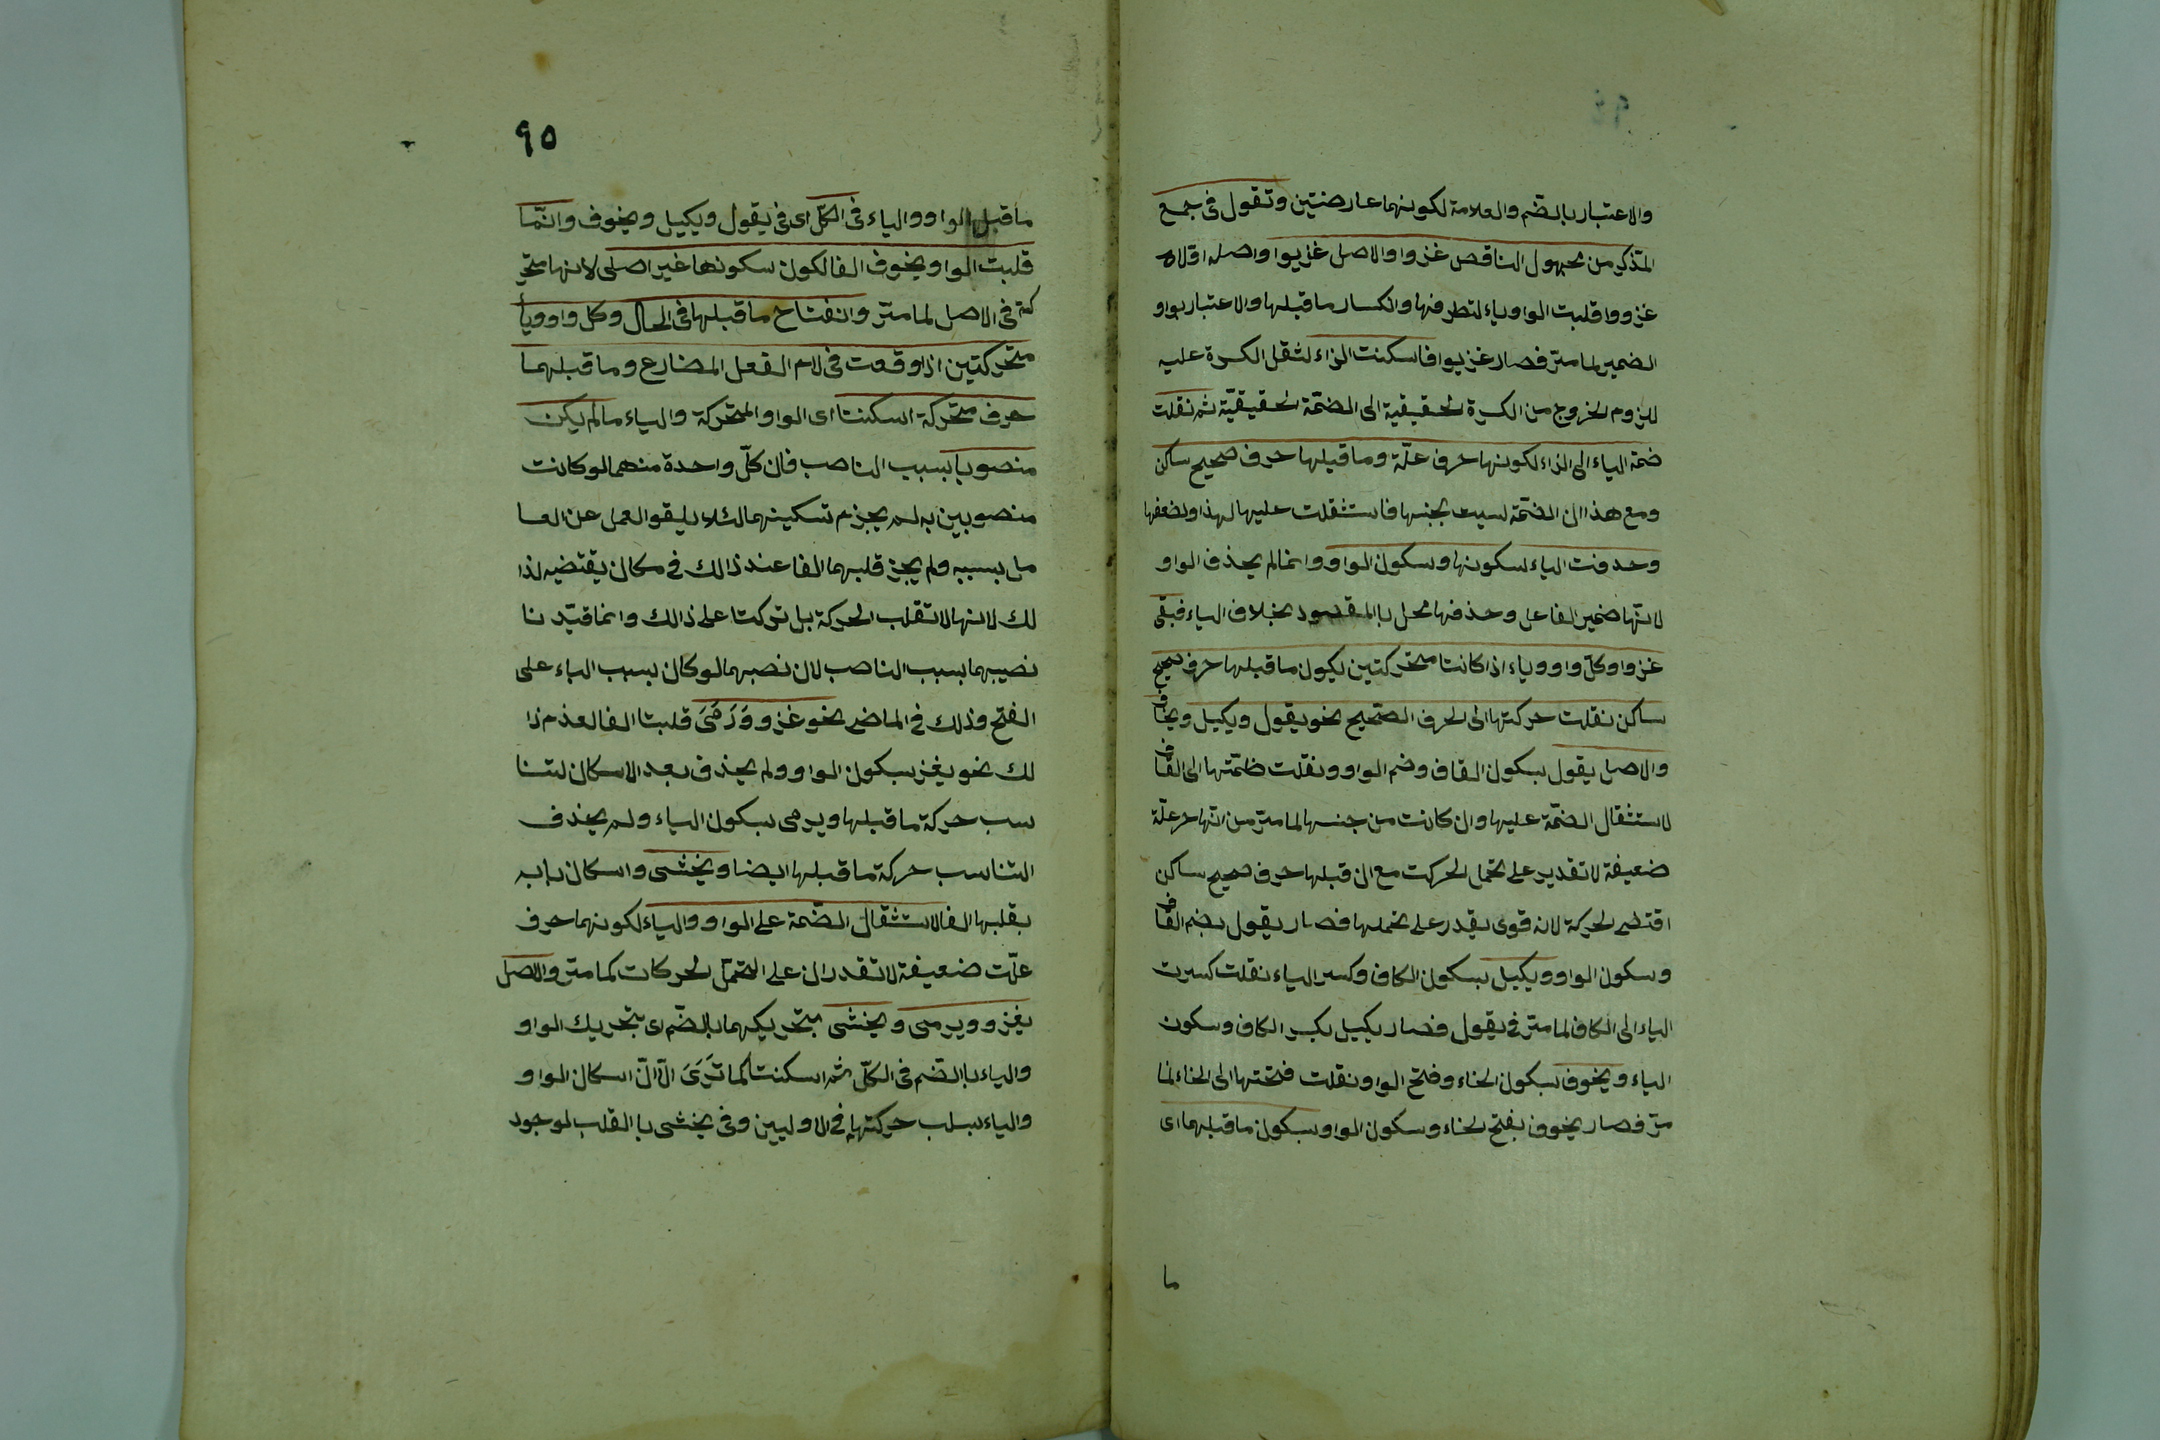 والاعتبار بالضم والعلامة لكونهما عارضتين وتقول فى جمع
المذكر من مجهول الناقص غزوا والاصل غزيوا واصله اولا
غزووا قلبت الواو ياء لتطرفها وانكسار ما قبلها والاعتبار بواو
الضمير لما مر فصار غزيوا فاسكنت الزاء لثقل الكسرة عليه
للزوم الخروج من الكسرة الحقيقية الى الضمّة الحقيقيّة ثم نقلت
ضمة الياء الى الزاء لكونها حرف علّة وما قبلها حرف صحيح ساكن
ومع هذا ان الضمّة ليست بجنسها فاستثقلت عليها لهذا ولضعفها
وحدفت الياء لسكونها وسكون الواو وانما لم يحذف الواو
لانّها ضمير الفاعل وحذفها مخل باالمقصود بخلاف الياء فبقى
غزوا وكلّ واو وياء اذا كانتا متحركتين يكون ما قبلها حرف صحيح
ساكن نقلت حركتها الى الحرف الصّحيح نحو يقول ويكيل ويخاف
والاصل يقول بسكون القاف وضم الواو ونقلت ضمّتها الى القاف
لاستثقال الضمّة عليها وان كانت من جنسها لما مرّ من انّها حر علّة
ضعيفة لا تقدير على تحمل الحركت مع ان قبلها حرف صحيح ساكن
اقتضى الحركة لانه قوى يقدر على تحملها فصار يقول بضم القاف
وسكون الواو ويكيل بسكون الكاف وكسر الياء نقلت كسرت
الياء الى الكاف لما مرّ فى يقول فصار يكيل بكسر الكاف وسكون
الياء ويخوف بسكون الخاء وفتح الواو نقلت فتحتها الى الخاء لما
مرّ فصار يخوف بفتح الخاء وسكون الواو وسكون ما قبلهما اى
ما
٩٥
ما قبل الواو والياء فى الكلّ اى فى يقول ويكيل ويخوف وانّما
قلبت الواو يخوف الفا لكون سكونها غير اصلى لانها متحر
كة فى الاصل لما مرّ وانفتاح ما قبلها فى الحال وكل واو ويا
متحركتين اذا وقعت فى لام الفعل المضارع وما قبلهما
حرف متحركة اسكنتا اى الواو المتحركة والياء ما لم يكن
منصوبا بسبب الناصب فان كلّ واحدة منهما لو كانت
منصوبين به لم يجزم تسكينهما لئلا يلقو العمل عن العا
مل بسببه ولم يجز قلبهما الفا عند ذالك فى مكان يقتضيه لذا
لك لانها لا تقلب الحركة بل تركتا على ذالك وانما قيّدنا
نصبهما بسبب الناصب لان نصبهما لو كان بسبب البناء على
الفتح وذلك فى الماضى نحو غزو ورَمَىَ قلبتا الفا لعدم ذا
لك نحو يغز بسكون الواو ولم يحذف بعد الاسكان لتنا
سب حركة ما قبلها ويرمى بسكون الياء ولم يحذف
التناسب حركة ما قبلها ايضا ويخشى واسكان يابه
بقلبها الفا لاستثقال الضّمة على الواو والياء لكونهما حرف
علّت ضعيفة لا تقدران على التحمّل الحركات كما مرّ والاصل
يغزو ويرمى ويخشى بتحريكهما باالضّم اى بتحريك الواو
والياء باالضّم فى الكلّ ثم اسكنتا كما تَرَىَ الّا انّ اسكان الواو
والياء بسلب حركتها فى الاوليين وفى يخشى باالقلب لوجود